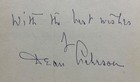 With the best wishes
of
Dean Acheson